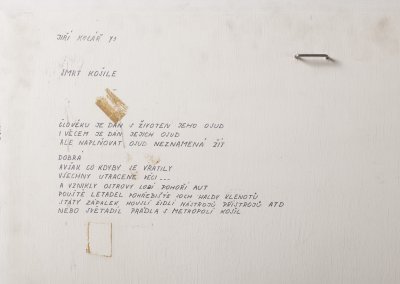 JIŘÍ KOLÁŘ
SMRT KOŠILE
ČLOVĚKU JE DÁN S ŽIVOTEM JEHO OSUD
I VĚCEM JE DÁN JEJICH OSUD
ALE NAPLŇOVAT OSUD NEZNAMENÁ ŽÍT
DOBRÁ
AVŠAK CO KDYBY SE VRÁTILY
VŠECHNY UTRACENÉ VĚCI ...
A VZNIKLY OSTROVY LODÍ POHOŘÍ AUT
POUŠTĚ LETADEL POHŘEBIŠTĚ HALDY KLENOTŮ
STÁTY ZÁPALEK HOUSLÍ ŽIDLÍ NÁSTROJŮ PŘÍSTROJŮ ATD
NEBO SVĚTADÍL PRÁDLA S METROPOLÍ KOŠIL